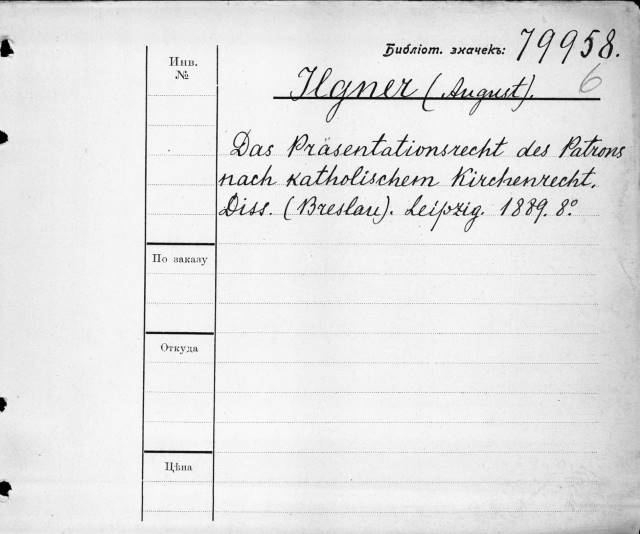 Библіот. значекъ: 79958.
6
Инв.
№
Ilgner (August).
Das Präsentationsrecht des Patrons
nach katholischem Kirchenrecht.
Diss. (Breslau). Leipzig. 1889. 8°.
По заказу
Откуда
Цѣна